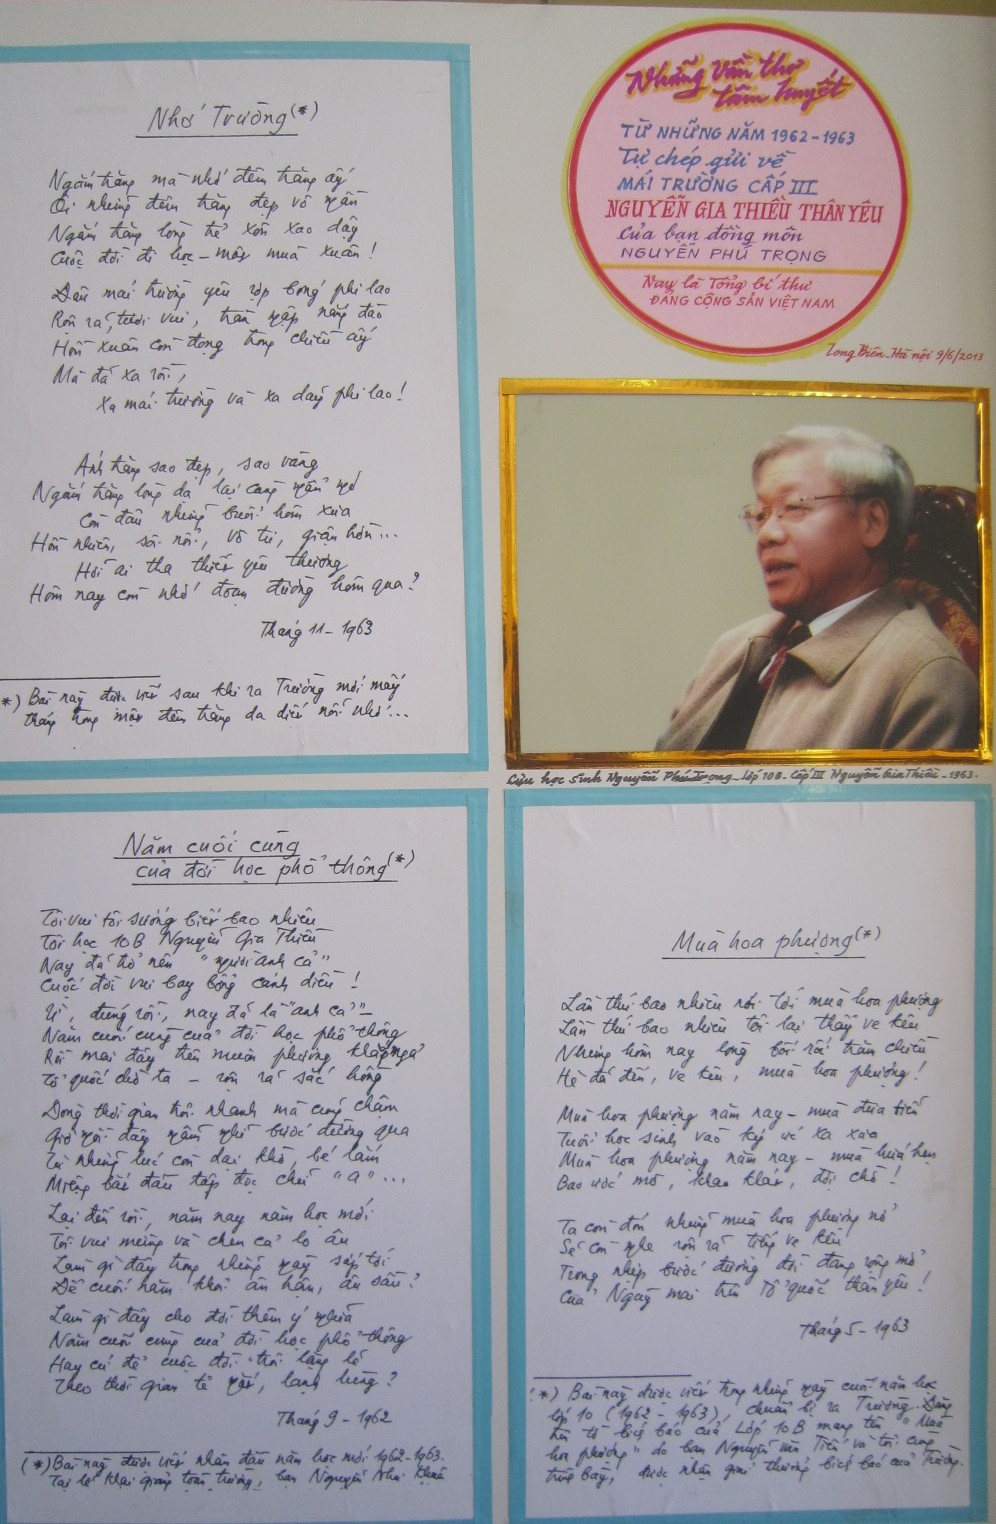 Nhớ Trường (*)
Ngắm trăng mà nhớ đêm trăng ấy
Ôi những đêm trăng đẹp vô ngần
Ngắm trăng lòng tớ xốn xao dậy
Cuộc đời đi học - mấy mùa xuân!
Dấu mái trường yêu rợp bóng phi lao
Rộn rã, tươi vui, tràn ngập nắng đào
Hồn xuân còn đọng trong chiều ấy
Mà đã xa rồi,
Xa mái trường và xa dãy phi lao!
Ánh trăng sao đẹp, sao vàng
Ngắm trăng lòng dạ lại càng ngẩn ngơ
Còn đâu những buổi hôm xưa
Hồn nhiên, sôi nổi, vô tư, giận hờn...
Hỡi ai tha thiết yêu thương
Hôm nay còn nhớ đoạn đường hôm qua?
Tháng 11 - 1963
(*) Bài này được viết sau khi ra Trường mới mấy
tháng trong một đêm trăng da diết nỗi nhớ...
Những vần thơ
tâm huyết
TỪ NHỮNG NĂM 1962 - 1963
Tự chép gửi về
MÁI TRƯỜNG CẤP III
NGUYỄN GIA THIỀU THÂN YÊU
của bạn đồng môn
NGUYỄN PHÚ TRỌNG
Nay là Tổng bí thư
ĐẢNG CỘNG SẢN VIỆT NAM
Long Biên - Hà nội 9/6/2013
Cựu học sinh Nguyễn Phú Trọng - Lớp 10B - Cấp III Nguyễn Gia Thiều - 1963.
Năm cuối cùng
của đời học phổ thông (*)
Tôi vui tôi sướng biết bao nhiêu
Tôi học 10B Nguyễn Gia Thiều
Nay đã trở nên "người anh cả"
Cuộc đời vui bay bổng cánh diều!
Ừ, đúng rồi, nay đã là "anh cả" -
Năm cuối cùng của đời học phổ thông
Rồi mai đây trên muôn phương khắp ngả
Tổ quốc chờ ta - rộn rã sắc hồng
Dòng thời gian trôi nhanh mà cũng chậm
Giờ ngồi đây ngẫm nghĩ bước đường qua
Từ những lúc còn dại khờ, bé lắm
Miệng bắt đầu tập đọc chữ "a"...
Lại đến rồi, năm nay năm học mới
Tôi vui mừng và chen cả lo âu
Làm gì đây trong những ngày sắp tới
Để cuối năm khỏi ân hận, âu sầu?
Làm gì đây cho đời thêm ý nghĩa
Năm cuối cùng của đời học phổ thông
Hay cứ để cuộc đời trôi lặng lẽ
Theo thời gian tẻ ngắt, lạnh lùng?
Tháng 9 - 1962
(*) Bài này được viết nhân đầu năm học mới 1962-1963.
Tại lễ khai giảng toàn trường, bạn Nguyễn Như
Mùa hoa phượng (*)
Lần thứ bao nhiêu nói tới mùa hoa phượng
Lần thứ bao nhiêu tôi lại thấy ve kêu
Nhưng hôm nay lòng bối rối trăm chiều
Hè đã đến, ve kêu, mùa hoa phượng!
Mùa hoa phượng năm nay - mùa đưa tiễn
Tuổi học sinh vào ký ức xa xưa
Mùa hoa phượng năm nay - mùa hứa hẹn
Bao ước mơ, khao khát, đợi chờ!
Ta còn đón những mùa hoa phượng nở
Sẽ còn nghe rộn rã tiếng ve kêu
Trong nhịp bước đường đời đang rộng mở
Của Ngày mai trên Tổ quốc thân yêu!
Tháng 5 - 1963
(*) Bài này được viết trong những ngày cuối năm học
lớp 10 (1962 - 1963), chuẩn bị ra Trường. Đúng
tên tờ bích báo của Lớp 10B mang tên "Mùa
hoa phượng" do bạn Nguyễn Văn Tiến và tôi cùng
trưng bày, được nhận giải thưởng bích báo của Trường.